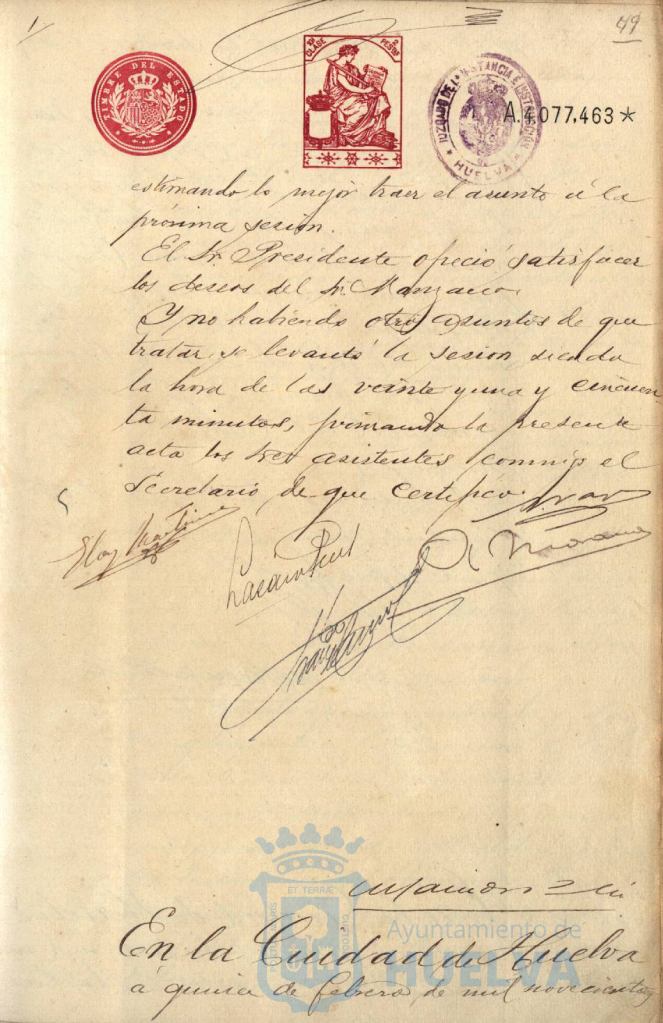 49
TIMBRE DEL ESTADO
CLASE
PESETAS
JUZGADO DE 1ª INSTANCIA E INSTRUCCION
HUELVA
A.4077,463*
estimando lo mejor traer el asunto á la
próxima sesión.
El Sr. Presidente ofreció satisfacer
los deseos del Sr. Manzano.
Y no habiendo otros asuntos de que
tratar, se levantó la sesion siendo
la hora de las veinte y una y cincuen
ta minutos, firmando la presente
acta los tres asistentes conmigo el
Secretario, de que certifico.
Eloy Martin
ET TERRÆ
Ayuntamiento de
HUELVA
En la Ciudad de Huelva
á quince de febrero de mil novecientos